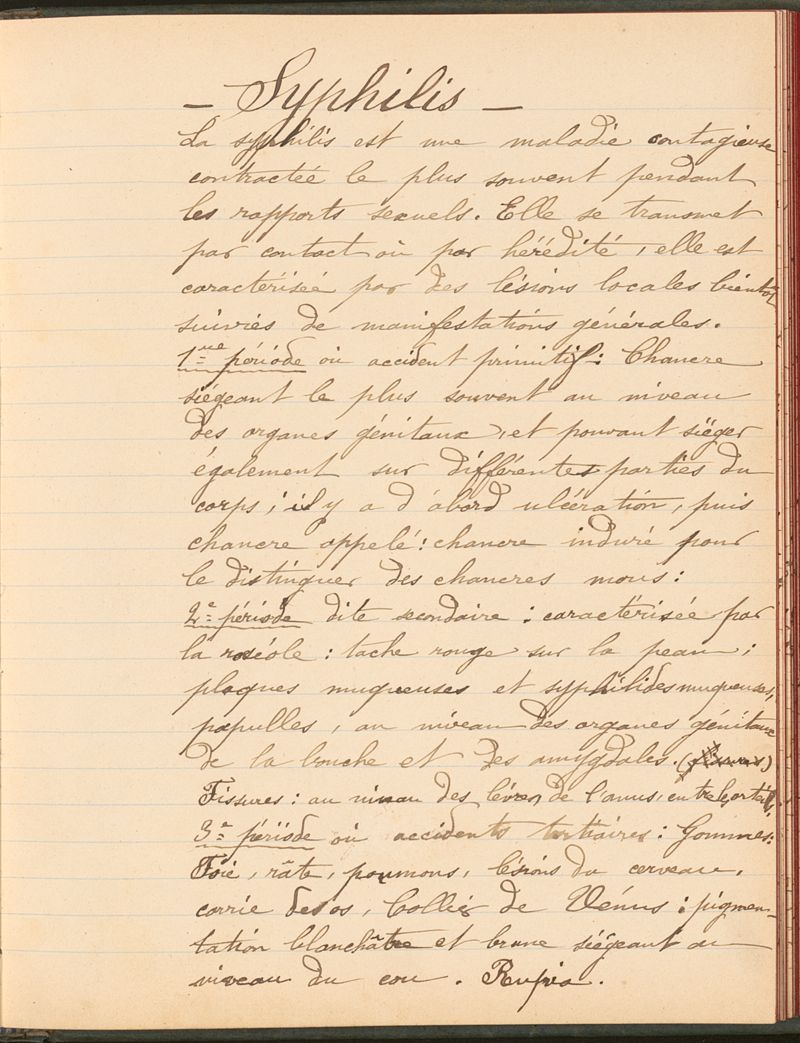 — Syphilis —
La syphilis est une maladie contagieuse
contractée le plus souvent pendant
les rapports sexuels. Elle se transmet
par contact où par hérédité, elle est
caractérisée par des lésions locales bientôt
suiviés de manifestations générales.
1ère période où accident primitif : Chancre
siégeant le plus souvent au niveau
des organes génitaux, et pouvant siéger
également sur différentes parties du
corps ; il y a d'abord ulcération, puis
chancre appelé : chancre induré pour
le distinguer des chancres mous :
2e période dite secondaire : caractérisée par
la roséole : tache rouge sur la peau ;
plaques muqueuses et syphilides muqueuses,
papulles, au niveau des organes génitaux
de la bouche et des amygdales. (fissures)
Fissures : au niveau des lèvres, de l'anus, entre orteils.
3e période où accidents tertiaires : Gommes :
Foie, râte, poumons, lésions du cerveau,
carrie des os, Collier de Vénus : pigmen-
tation blanchâtre et brune siégeant au
niveau du cou. Rupia.